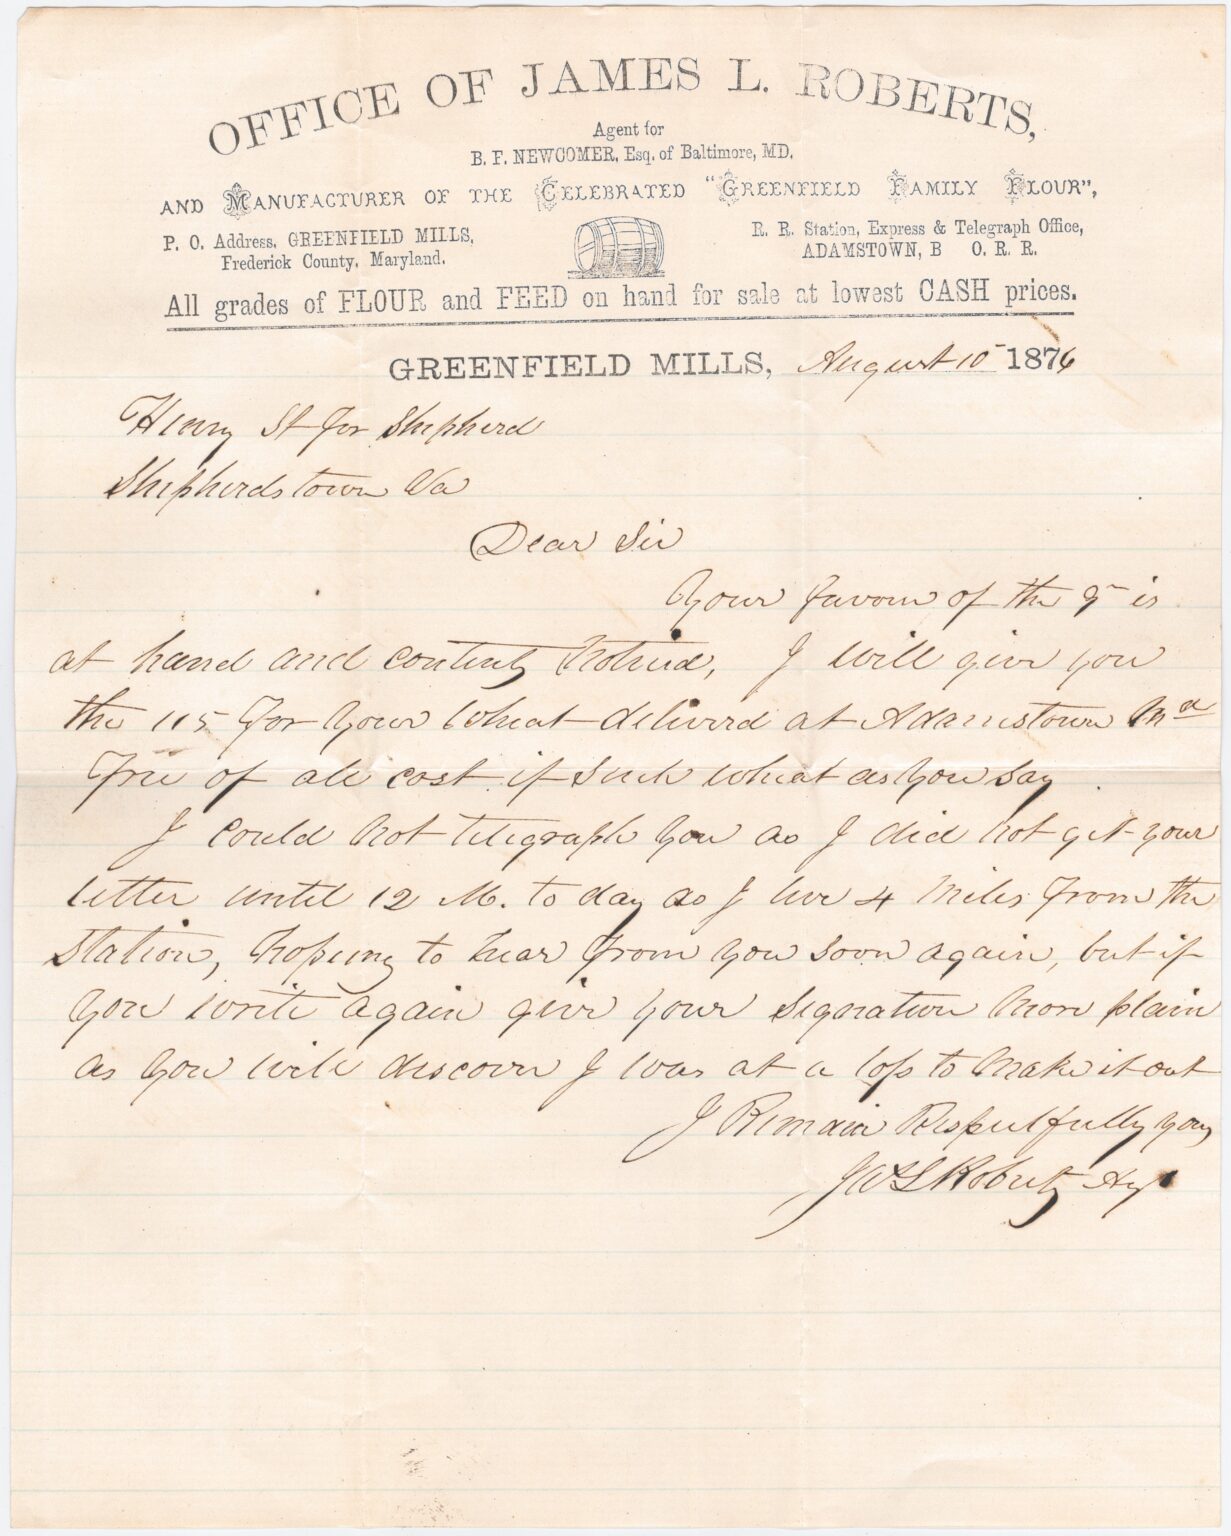 OFFICE OF JAMES L. ROBERTS,
Agent for
B. F. NEWCOMER, Esq. of Baltimore, MD.
AND MANUFACTURER OF THE CELEBRATED "GREENFIELD FAMILY FLOUR",
P. O. Address, GREENFIELD MILLS,
Frederick County, Maryland.
R. R. Station, Express & Telegraph Office,
ADAMSTOWN, B O. R. R.
All grades of FLOUR and FEED on hand for sale at lowest CASH prices.
GREENFIELD MILLS, August 10 1876
Henry St for Shepherd
Shepherdstown Va
Dear Sir
Your favour of the 9 is
at hand and contents Noticed, I will give you
the 115 For Your Wheat delivered at Adamstown Md
Free of all cost if Such wheat as You Say
I could Not telegraph You as I did not get your
letter until 12 M. to day as I live 4 Miles From the
Station, hopeing to hear From you soon again, but if
You write again give your Signature More plain
as You will discover I was at a loss to Make it out
I Remain Respectfully yours
Jas L Roberts Agt